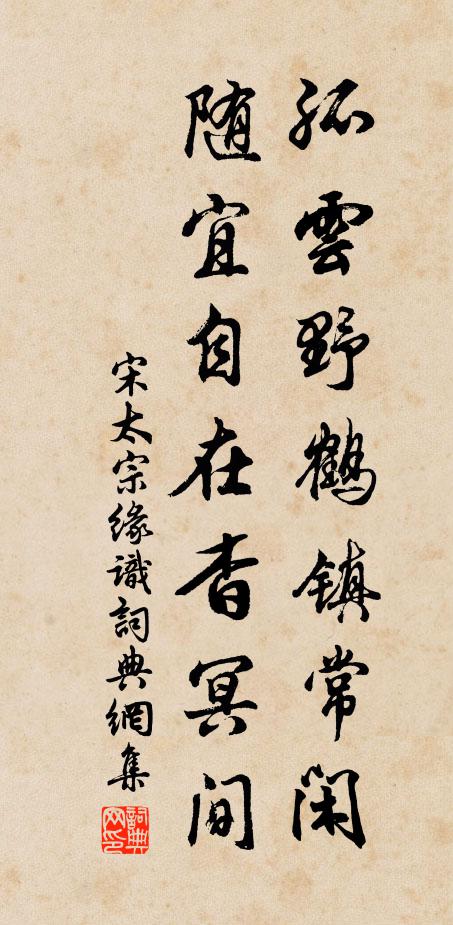 孤雲野鶴鎮常閑
随宜自在杳冥间
宋太宗緣識詞典網集
詞典网印